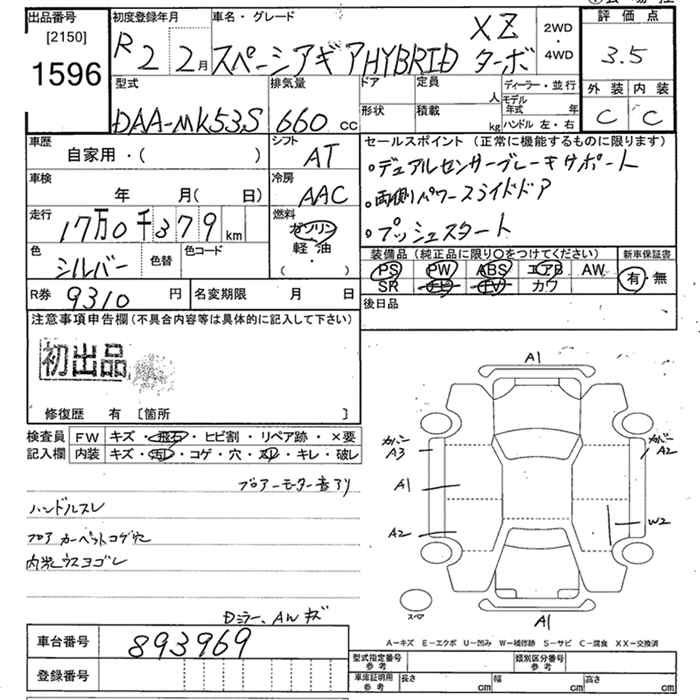 出品番号
[2150]
1596
初度登録年月
R 2 2月
車名・グレード
スペーシアギアHYBRID XZ ターボ
2WD・4WD
評価点
3.5
外装 内装
C C
型式
DAA-MK53S
排気量
660 cc
ドア
定員
人
形状
積載
kg
ディーラー・並行
モデル年式 年
ハンドル 左・右
車歴
自家用・( )
シフト
AT
車検
年 月( 日)
冷房
AAC
走行
17万0千379km
燃料
ガソリン
軽・油
( )
色
シルバー
色替
色コード
R券 9310 円
名変期限 月 日
セールスポイント (正常に機能するものに限ります)
・デュアルセンサーブレーキサポート
・両側パワースライドドア
・プッシュスタート
装備品 (純正品に限り○をつけてください)
新車保証書
PS PW ABS エアB AW
SR ナビ TV カワ
有・無
後日品
注意事項申告欄(不具合内容等は具体的に記入して下さい)
初出品
修復歴 有 [箇所 ]
検査員記入欄
FW キズ・飛石・ヒビ割・リペア跡・×要
内装 キズ・汚レ・コゲ・穴・スレ・キレ・破レ
ブロアーモーター音アリ
ハンドルスレ
フロア カーペットコゲ穴
内装ウスヨゴレ
Dミラー、AWキズ
A1
カバー A3
カバー A2
A1
A2
W2
スペア
A1
A-キズ E-エクボ U-凹み W-補修跡 S-サビ C-腐食 XX-交換済
車台番号 893969
登録番号
型式指定番号 参考
類別区分番号 参考
車庫証明用 参考
長さ cm
幅 cm
高さ cm